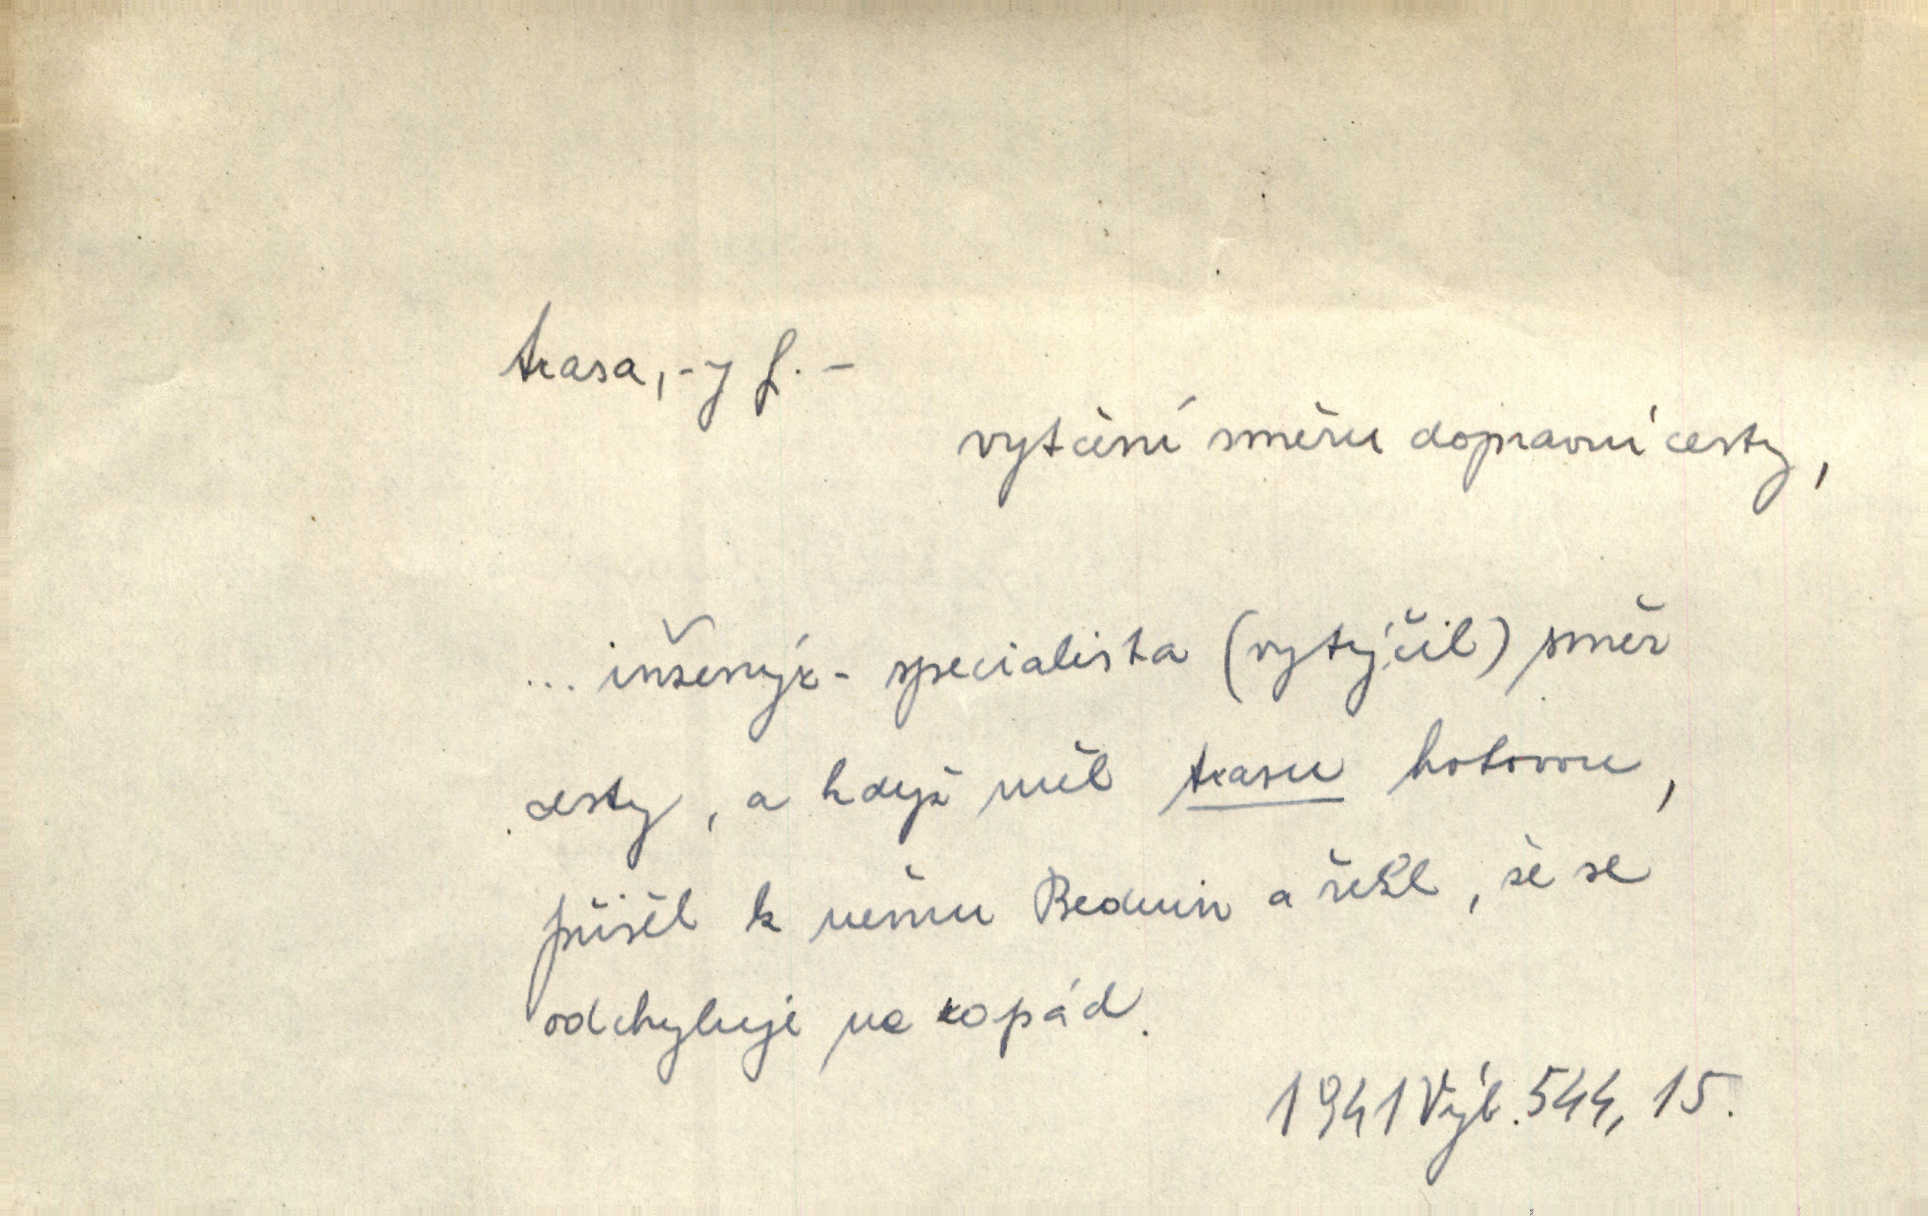 trasa, -y f. -
vytčení směru dopravní cesty,
... inženýr - specialista (vytýčil) směr
cesty, a když měl trasu hotovou,
přišel k němu Beduin a řekl, že se
odchyluje na západ.
1941 Výb. 544, 15.